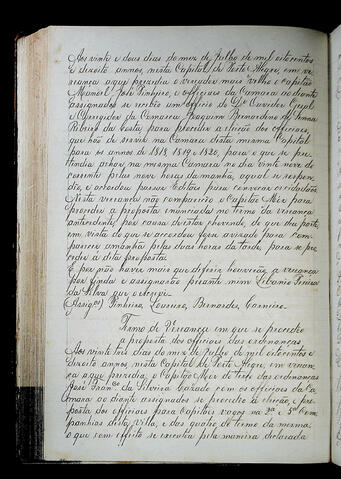 Aos vinte e dous dias do mez de Julho de mil oitocentos
e dezoito annos, nesta Capital de Porto Alegre, em ve-
reança aque prezedio o vereador mais velho o capitão
Manoel José Pinheiro, e officiaes da Camara ao diante
assignados se recebeo um officio do Dr. Ouvidor Geral
e Corregedor da Comarca Joaquim Bernardino de Senna
Ribeiro da Costa, para proceder a eleição dos officiaes,
que hão de servir na Camara desta mesma Capital
para os annos de 1818, 1819 e 1820, para o que se pre-
tendia achar na mesma Camara no dia vinte nove do
corrente pelas nove horas da manhã, aqual se respon-
deo, e acordou passar Editaes para convocar os cidadãos
Nesta vereança não compareceo o Capitão Mór para
proceder a proposta enunciada no termo da vereança
antecedente por causa de estar chovendo, de que deu parte,
em vista do que se accordou fosse avizado para com-
parecer amanhã pelas duas horas da tarde, para se pro-
ceder á dita proposta.
E por não haver mais que deferir houverão a vereança
por finda e assignarão perante mim Libanio Pereira
da Silva que o escrevi.
(Assigos) Pinheiro, Loureiro, Bernardes, Carneiro.
Termo de Vereança em que se procedeo
a proposta dos officiaes das ordenanças
Aos vinte tres dias do mez de Julho de mil oitocentos e
dezoito annos, nesta Capital de Porto Alegre, em verean-
ça aque prezedio, o Capitão Mór de tres das ordenanças
José Franco da Silveira Cazado com os officiaes da Ca-
mara ao diante assignados se procedeo á eleição, e pro-
posta dos officiaes para Capitães vagos na 2a e 5a Com-
panhias desta villa, e das quatro de termo da mesma;
o que com effeito se executou pela maneira declarada